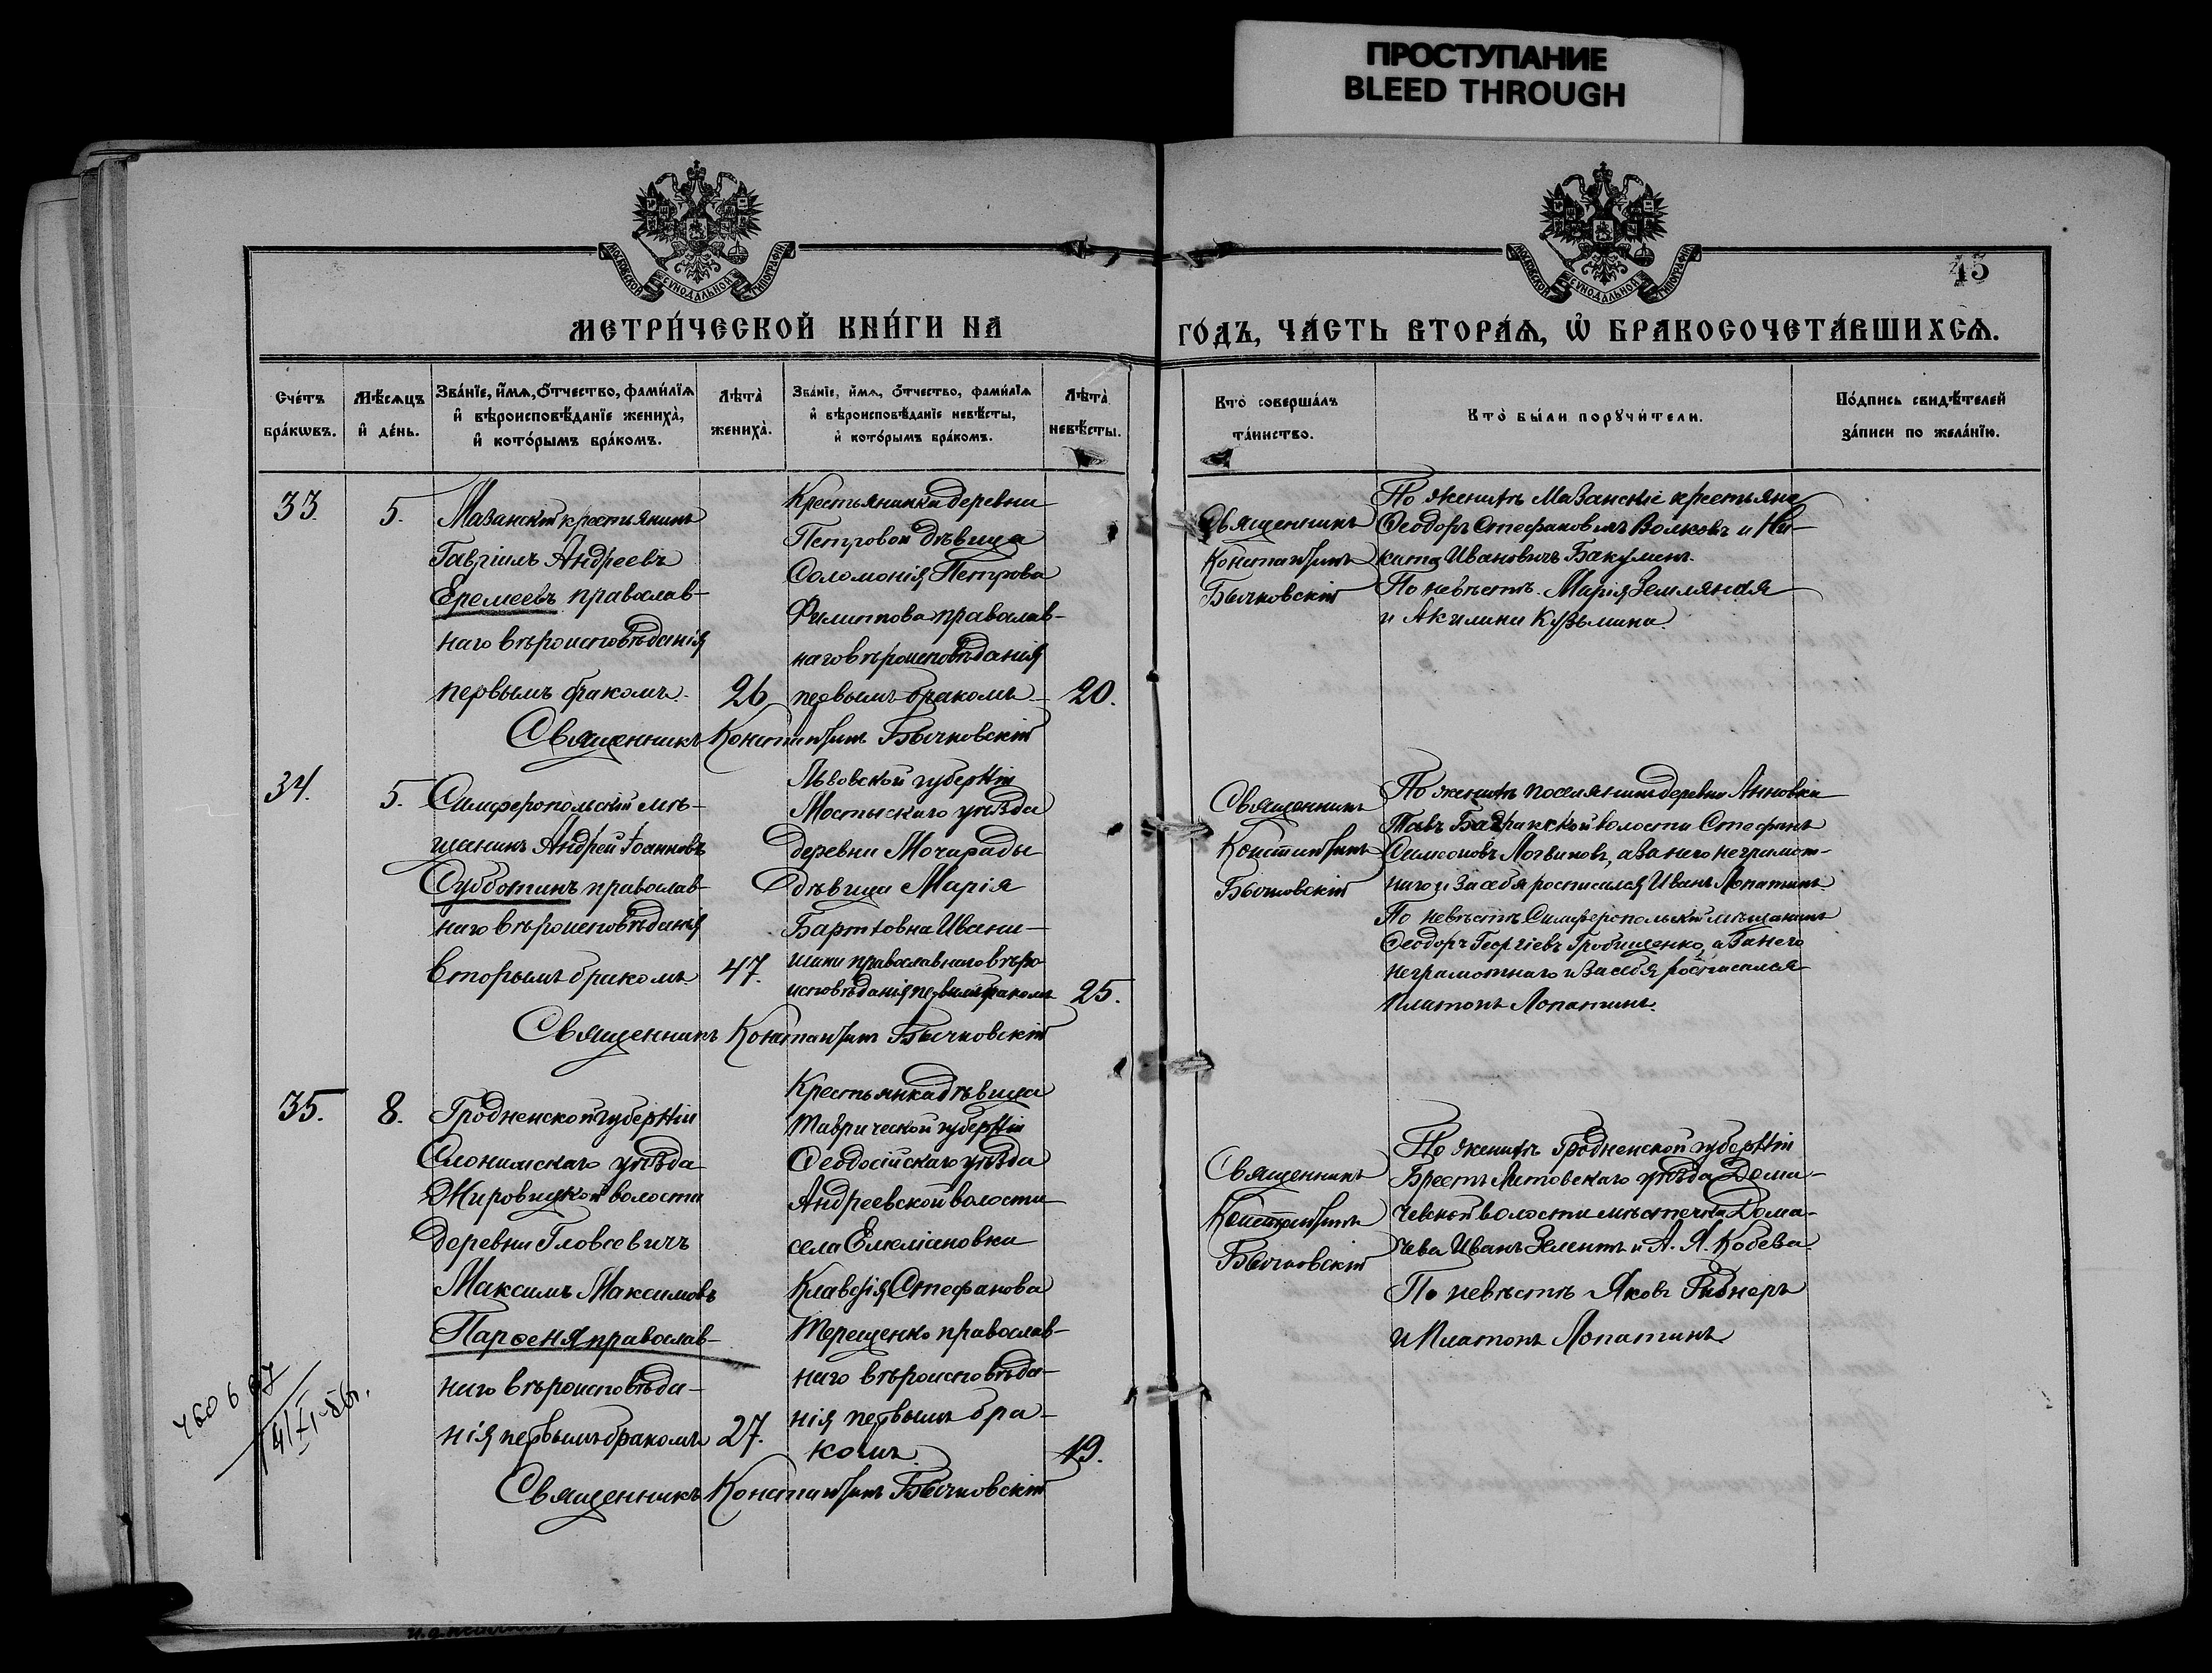 ПРОСТУПАНИЕ
BLEED THROUGH
МОСКОВСКОЙ СѴНОДАЛЬНОЙ ТИПОГРАФІИ
МОСКОВСКОЙ СѴНОДАЛЬНОЙ ТИПОГРАФІИ
45
МЕТРИ́ЧЕСКОЙ КНИ́ГИ НА
ГО́ДЪ, ЧА́СТЬ ВТОРА́Ѧ, Ѽ БРАКОСОЧЕТА́ВШИХСѦ.
Сче́тъ
бра́кѡвъ.
Мѣ́сѧцъ
и҆ де́нь.
Зва́нїе, и҆́мѧ, ѻ҆́тчество, фами́лїѧ
и҆ вѣроисповѣ́данїе жениха̀,
и҆ кото́рымъ бра́комъ.
Лѣта̀
жениха̀.
Зва́нїе, и҆́мѧ, ѻ҆́тчество, фами́лїѧ
и҆ вѣроисповѣ́данїе невѣ́сты,
и҆ кото́рымъ бра́комъ.
Лѣта̀
невѣ́сты.
Кто̀ соверша́лъ
та́инство.
Кто̀ бы́ли порꙋчи́тели.
По́дпись свидѣ́телей
за́писи по жела́нїю.
33.
5.
Мазанскій крестьянинъ
Гавріилъ Андреевъ
Еремеевъ православ-
наго вѣроисповѣданія
первымъ бракомъ.
26
Крестьянина деревни
Петровой дѣвица
Соломонія Петрова
Филиппова православ-
наго вѣроисповѣданія
первымъ бракомъ
20.
Священникъ Константинъ Бычковскій
Священникъ
Константинъ
Бычковскій
По женихѣ Мазанскіе крестьяне
Ѳеодоръ Стефановичъ Волковъ и Ни-
кита Ивановичъ Бакуменъ.
По невѣстѣ Марія Земляная
и Акилина Кузьмина.
34.
5.
Симферопольскій мѣ-
щанинъ Андрей Іоанновъ
Субботинъ православ-
наго вѣроисповѣданія
вторымъ бракомъ
47.
Львовской губерніи
Мостыскаго уѣзда
деревни Мочарады
дѣвица Марія
Ивани-
шини православнаго вѣро-
исповѣданія первымъ бракомъ
25.
Священникъ Константинъ Бычковскій
Священникъ
Константинъ
Бычковскій
По женихѣ поселянинъ деревни Анновки
волости Стефанъ
Симеоновъ Логвиновъ, а за него неграмот-
наго и за себя росписался Иванъ Лопатинъ
По невѣстѣ Симферопольскій мѣщанинъ
Ѳеодоръ Георгіевъ Гробищенко, а за него
неграмотнаго и за себя росписался
Платонъ Лопатинъ.
35.
8.
Гродненской губерніи
Слонимскаго уѣзда
Жировицкой волости
деревни Гловсевичъ
Максимъ Максимовъ
Парѳеня православ-
наго вѣроисповѣда-
нія первымъ бракомъ
27.
Крестьянка дѣвица
Таврической губерніи
Ѳеодосійскаго уѣзда
Андреевской волости
села Емеліановки
Клавдія Стефанова
Терещенко православ-
наго вѣроисповѣда-
нія первымъ бра-
комъ.
19.
Священникъ Константинъ Бычковскій
Священникъ
Константинъ
Бычковскій
По женихѣ Гродненской губерніи
Брестъ Литовскаго уѣзда Дома-
чевской волости мѣстечка Дома-
чева Иванъ Зелентъ и А. Я. Кобева
По невѣстѣ Яковъ
и Платонъ Лопатинъ